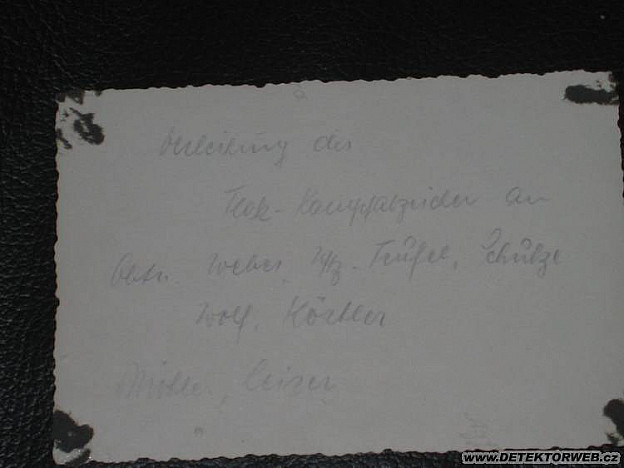 Verleihung des
Flak-Kampfabzeichen an
Obltn. Weber, Uffz. Teufel, Schulze
Wolf, Köstler
Müller, Geiser
www.DETEKTORWEB.cz